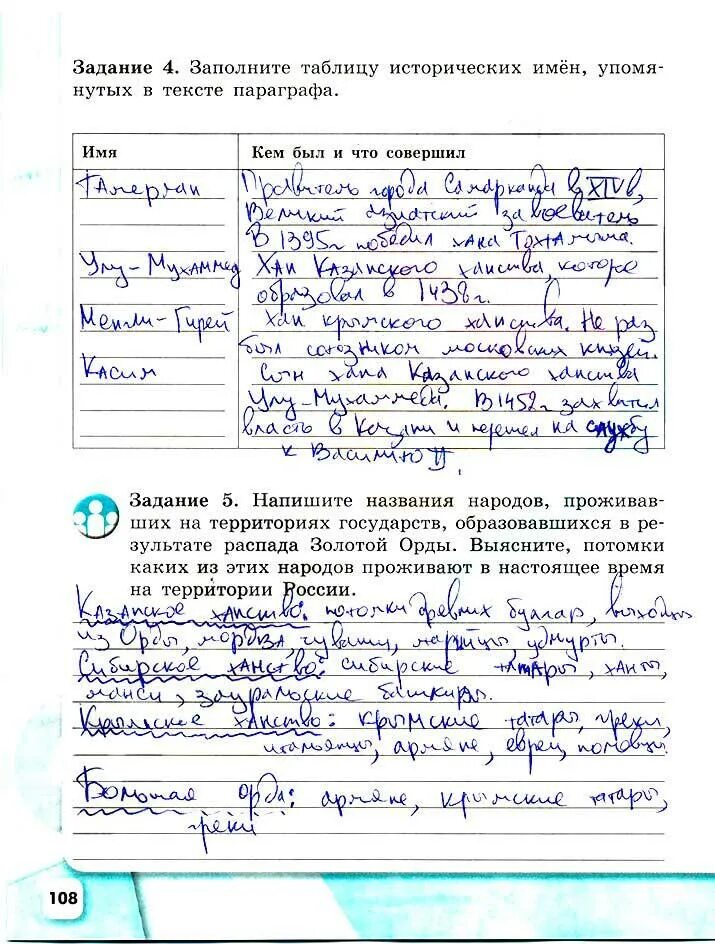 Задание 4. Заполните таблицу исторических имён, упомя-
нутых в тексте параграфа.
Имя
Кем был и что совершил
Тамерлан
Правитель города Самарканда в XIV в,
Великий азиатский завоеватель
В 1395г победил хана Тохтамыша.
Улу-Мухаммед
Хан Казанского ханства, которое
образовал в 1438г.
Менгли-Гирей
Хан крымского ханства. Не раз
был союзником московских князей.
Касим
Сын хана Казанского ханства
Улу-Мухаммеда. В 1452г захватил
власть в Казани и перешел на службу
к Василию II.
Задание 5. Напишите названия народов, проживав-
ших на территориях государств, образовавшихся в ре-
зультате распада Золотой Орды. Выясните, потомки
каких из этих народов проживают в настоящее время
на территории России.
Казанское ханство: потомки древних булгар, выходцы
из Орды, мордва, чуваши, марийцы, удмурты.
Сибирское ханство: сибирские татары, ханты,
манси, зауральские башкиры.
Крымское ханство: крымские татары, греки,
итальянцы, армяне, евреи, половцы.
Большая орда: армяне, крымские татары,
греки
108